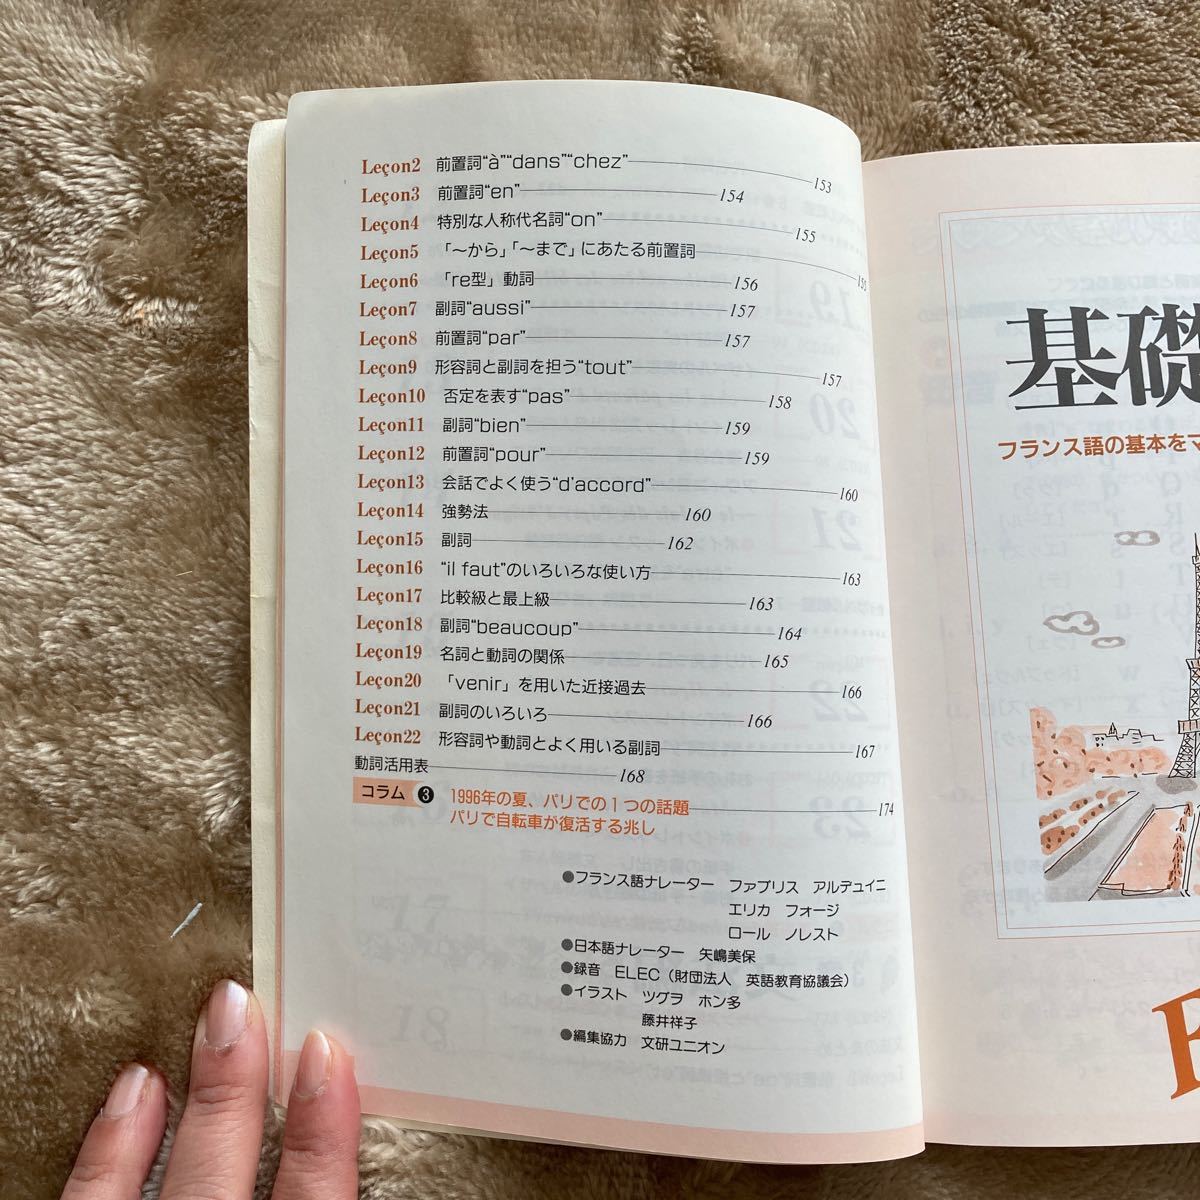 Leçon2 前置詞“à”“dans”“chez” 153
Leçon3 前置詞“en” 154
Leçon4 特別な人称代名詞“on” 155
Leçon5 「〜から」「〜まで」にあたる前置詞
Leçon6 「re型」動詞 156
Leçon7 副詞“aussi” 157
Leçon8 前置詞“par” 157
Leçon9 形容詞と副詞を担う“tout” 157
Leçon10 否定を表す“pas” 158
Leçon11 副詞“bien” 159
Leçon12 前置詞“pour” 159
Leçon13 会話でよく使う“d'accord” 160
Leçon14 強勢法 160
Leçon15 副詞 162
Leçon16 “il faut”のいろいろな使い方 163
Leçon17 比較級と最上級 163
Leçon18 副詞“beaucoup” 164
Leçon19 名詞と動詞の関係 165
Leçon20 「venir」を用いた近接過去 166
Leçon21 副詞のいろいろ 166
Leçon22 形容詞や動詞とよく用いる副詞 167
動詞活用表 168
コラム❸ 1996年の夏、パリでの1つの話題 174
パリで自転車が復活する兆し
●フランス語ナレーター ファブリス アルデュイニ
エリカ フォージ
ロール ノレスト
●日本語ナレーター 矢嶋美保
●録音 ELEC（財団法人 英語教育協議会）
●イラスト ツグヲ ホン多
藤井祥子
●編集協力 文研ユニオン
基礎
フランス語の基本をマ